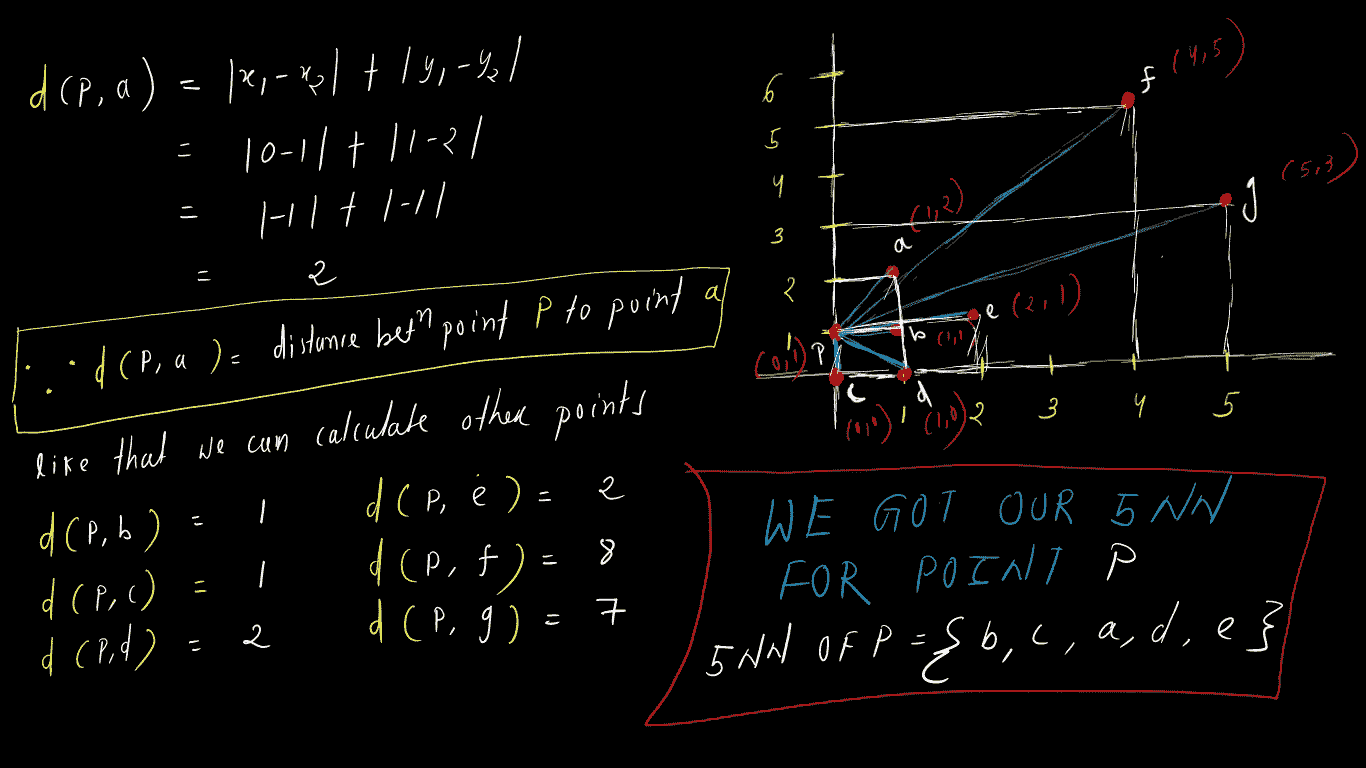 d(P, a) = |x₁ - x₂| + |y₁ - y₂|
= |0-1| + |1-2|
= |-1| + |-1|
= 2
∴ d(P, a) = distance betⁿ point P to point a
like that we can calculate other points
d(P, b) = 1
d(P, c) = 1
d(P,d) = 2
d(P, e) = 2
d(P, f) = 8
d(P, g) = 7
6
5
4
3
2
1
f (4,5)
g (5,3)
a (1,2)
e (2,1)
b (1,1
P (0,1)
c (0,0)
d (1,0)
1 2 3 4 5
WE GOT OUR 5NN
FOR POINT P
5NN OF P = {b, c, a, d, e}